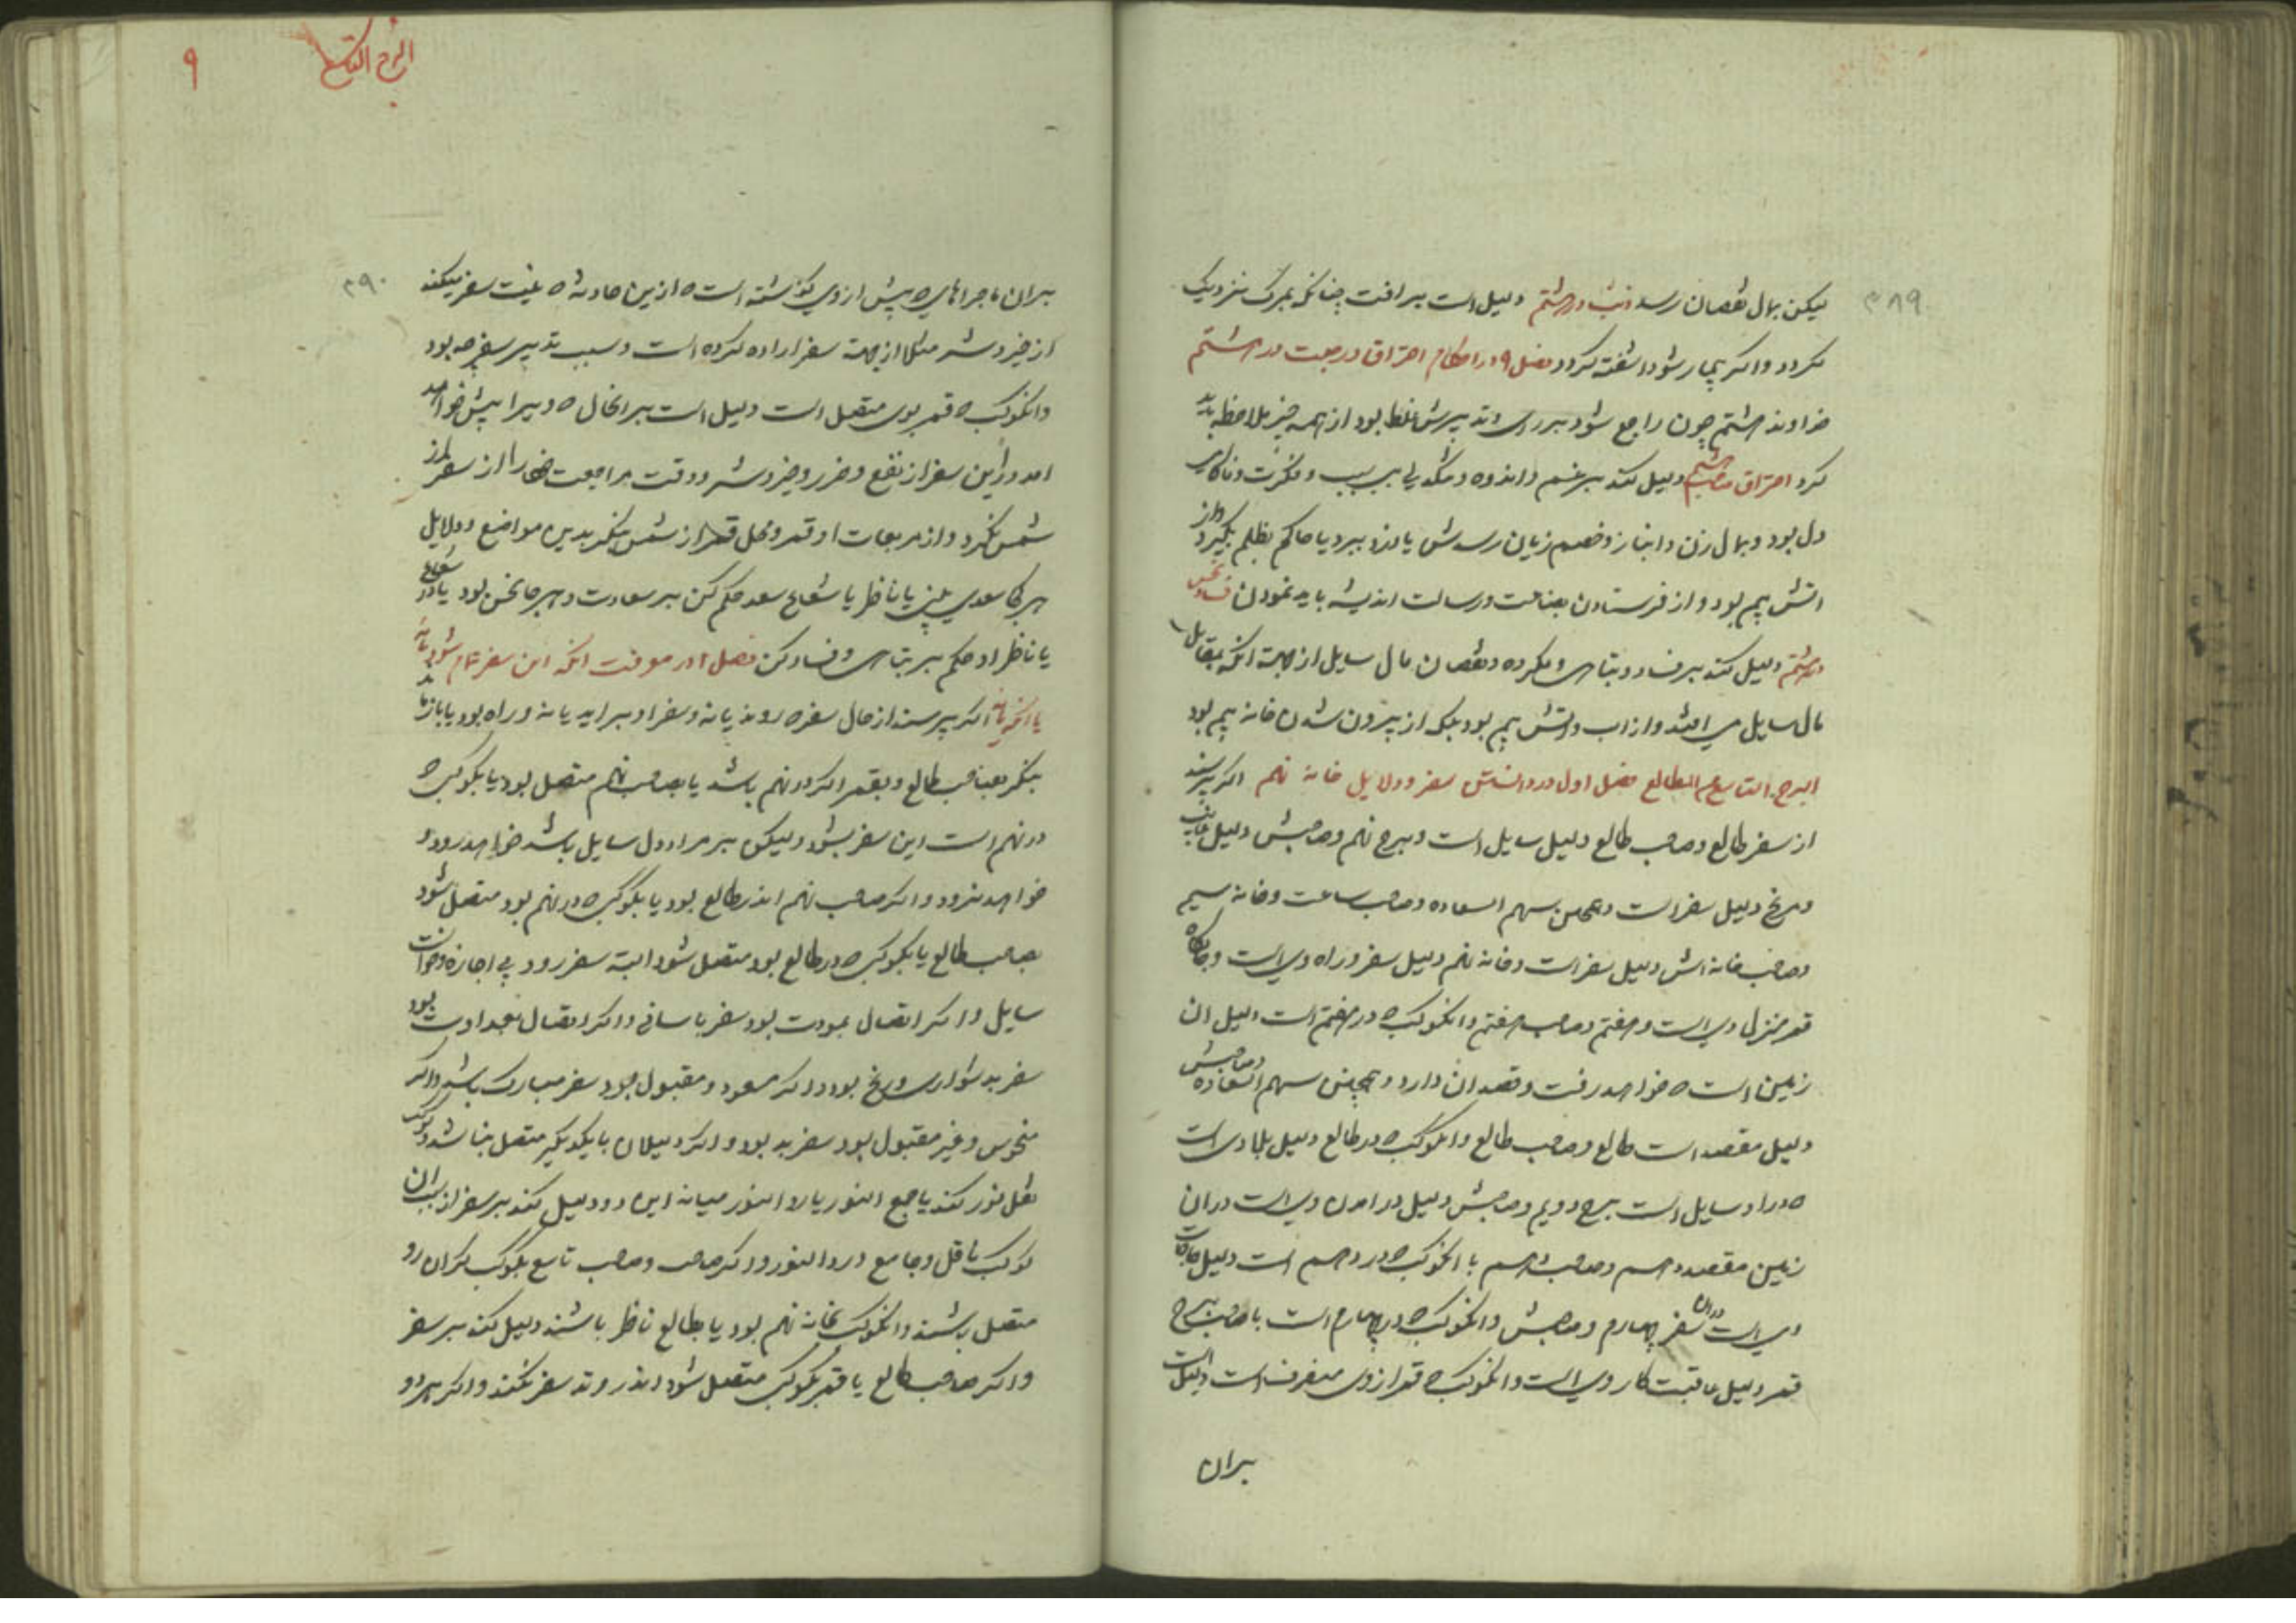 ۳۸۹
لیکن بمال نقصان رسد ذنب در هشتم دلیل است بر افت چنانکه بمرک نزدیک
کردد و اکر بیمار شود اشفته کردد فصل ۹ در احکام احتراق و رجعت در هشتم
خداوند هشتم چون راجع شود بر رای و تدبیرش غلط بود از همه چیز ملاحظه باید
کرد احتراق صاحب هشتم دلیل کند بر غم و اندوه و تنکدلی بی سبب و فکرت و ناکامی
دل بود و بمال زن و انباز و خصم زیان رسدش یا دزد ببرد یا حاکم بظلم بکیرد و از
اتش بیم بود و از فرستادن بضاعت و رسالت اندیشه باید نمودن فساد نحس
در هشتم دلیل کند بر فساد و تباهی و مکروه و نقصان مال سایل از جهة انکه بمقابل
مال سایل می افتد و از اب و اتش بیم بود بلکه از بیرون شدن خانه بیم بود
البرج التاسع من الطالع فصل اول در دانستن سفر و دلایل خانه نهم اکر پرسند
از سفر طالع و صاحب طالع دلیل سایل است و برج نهم و صاحبش دلیل غایب
و مریخ دلیل سفر است و همچنین سهم السعاده و صاحب ساعت و خانه سیم
و صاحب خانه اش دلیل سفر است و خانه نهم دلیل سفر و راه وی است و جایکاه
قمر منزل وی است و هفتم و صاحب هفتم و انکوکب که در هفتم است دلیل ان
زمین است که خواهد رفت و قصد ان دارد و همچنین سهم السعاده و صاحبش
دلیل مقصد است طالع و صاحب طالع و انکوکب که در طالع دلیل بلادی است
که در او سایل است برج دویم و صاحبش دلیل در امدن وی است در ان
زمین مقصد دهم و صاحب دهم با انکوکب که در دهم است دلیل حاجات
وی است در ان سفر چهارم و صاحبش و انکوکب که در چهارم است با صاحب برج
قمر دلیل عاقبت کار وی است و انکوکب که قمر از وی منصرف است دلیل است
بران
البرج التاسع
۹
۳۹۰
بران ماجراهای که پیش از وی کذشته است که ازین حادثه که نیت سفر میکند
از خیر و شر مثلا از جهة سفر اراده کرده است و سبب تدبیر سفر چه بود
وانکوکب که قمر بوی متصل است دلیل است بر انحال که ویرا پیش خواهد
امد در این سفر از نفع و ضرر و خیر و شر و وقت مراجعت از سفر
شمس نکرد و از مربعات او قمر و محل قمر از شمس بنکر بدین مواضع و دلایل
هر کجا سعدی بینی یا ناظر یا شعاع سعد حکم کن بر سعادت و هر جا نحس بود یا شعاع او
یا ناظر او حکم بر تباهی و فساد کن فصل ۲ در معرفت انکه این سفر تمام شود یا نه
اکر پرسند از حال سفر که روند یا نه و سفر او براید یا نه و راه بود یا باز ماند
بنکر بصاحب طالع و بقمر اکر در نهم باشد یا بصاحب نهم متصل بود یا بکوکب که
در نهم است این سفر بشود و لیکن بر مراد دل سایل باشد خواهد رود و
خواهد نرود و اکر صاحب نهم اندر طالع بود یا بکوکب که در نهم بود متصل شود
بصاحب طالع یا بکوکب که در طالع بود متصل شود البته سفر رود بی اجازه و خواست
سایل و اکر اتصال بمودت بود سفر باسانی و اکر اتصال بعداوت بود
سفر بدشواری و رنج بود و اکر مسعود و مقبول بود سفر مبارک باشد و اکر
منحوس و غیر مقبول بود سفر بد بود و اکر دلیلان با یکدیکر متصل نباشد و کوکب
نقل نور کند یا جمع النور یا رد النور میانه این دو دلیل کند بر سفر از سبب ان
کوکب ناقل و جامع و رد النور و اکر صاحب و صاحب تاسع بکوکب کران رو
متصل باشند و انکوکب بخانه نهم بود یا بطالع ناظر باشند دلیل کند بر سفر
و اکر صاحب طالع یا قمر بکوکب متصل شود اندر وتد سفر نکند و اکر هر دو